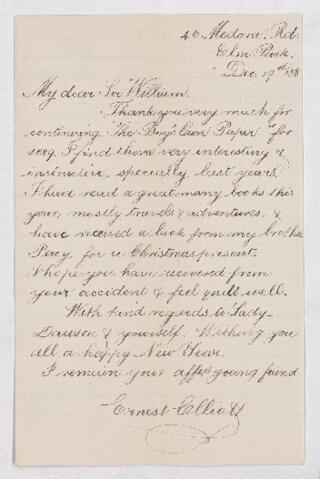 46 Medora Rd.
Elm Park
Dec. 17th 188
My dear Sir William.
Thank you very much for
continuing "The Boy's Own Paper" for
I find them very interesting &
instructive, specially last years.
I have read a great many books this
year, mostly travels & adventures, &
have received a book from my brother
Percy, for a Christmas present.
I hope you have recovered from
your accident & feel quite well.
With kind regards to Lady
Dawson & yourself. Wishing you
all a happy New Year.
I remain your affect young friend
Ernest Elliott